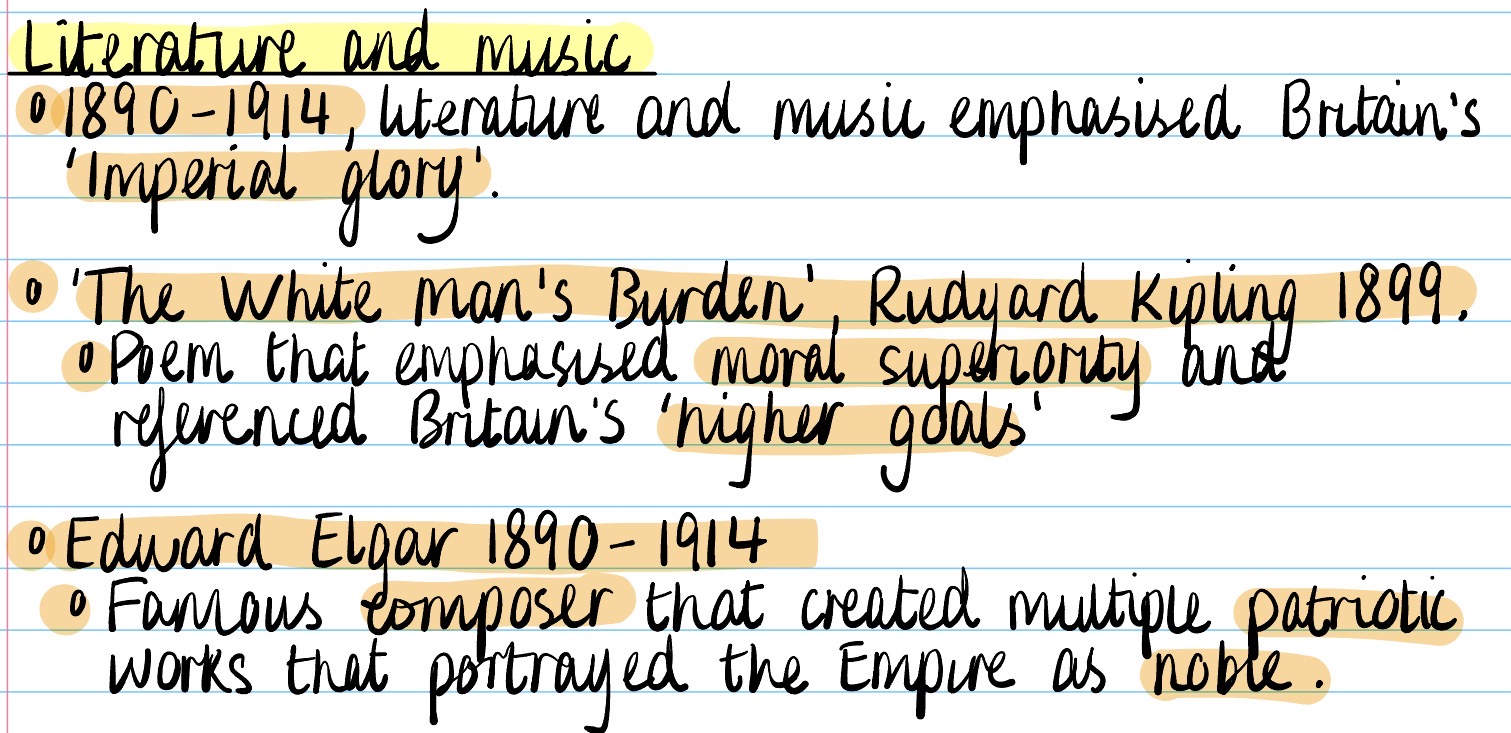 Literature and music
o 1890-1914, literature and music emphasised Britain's
'Imperial glory'.
o 'The White Man's Burden', Rudyard Kipling 1899.
o Poem that emphasised moral superiority and
referenced Britain's 'higher goals'
o Edward Elgar 1890-1914
o Famous composer that created multiple patriotic
works that portrayed the Empire as noble.